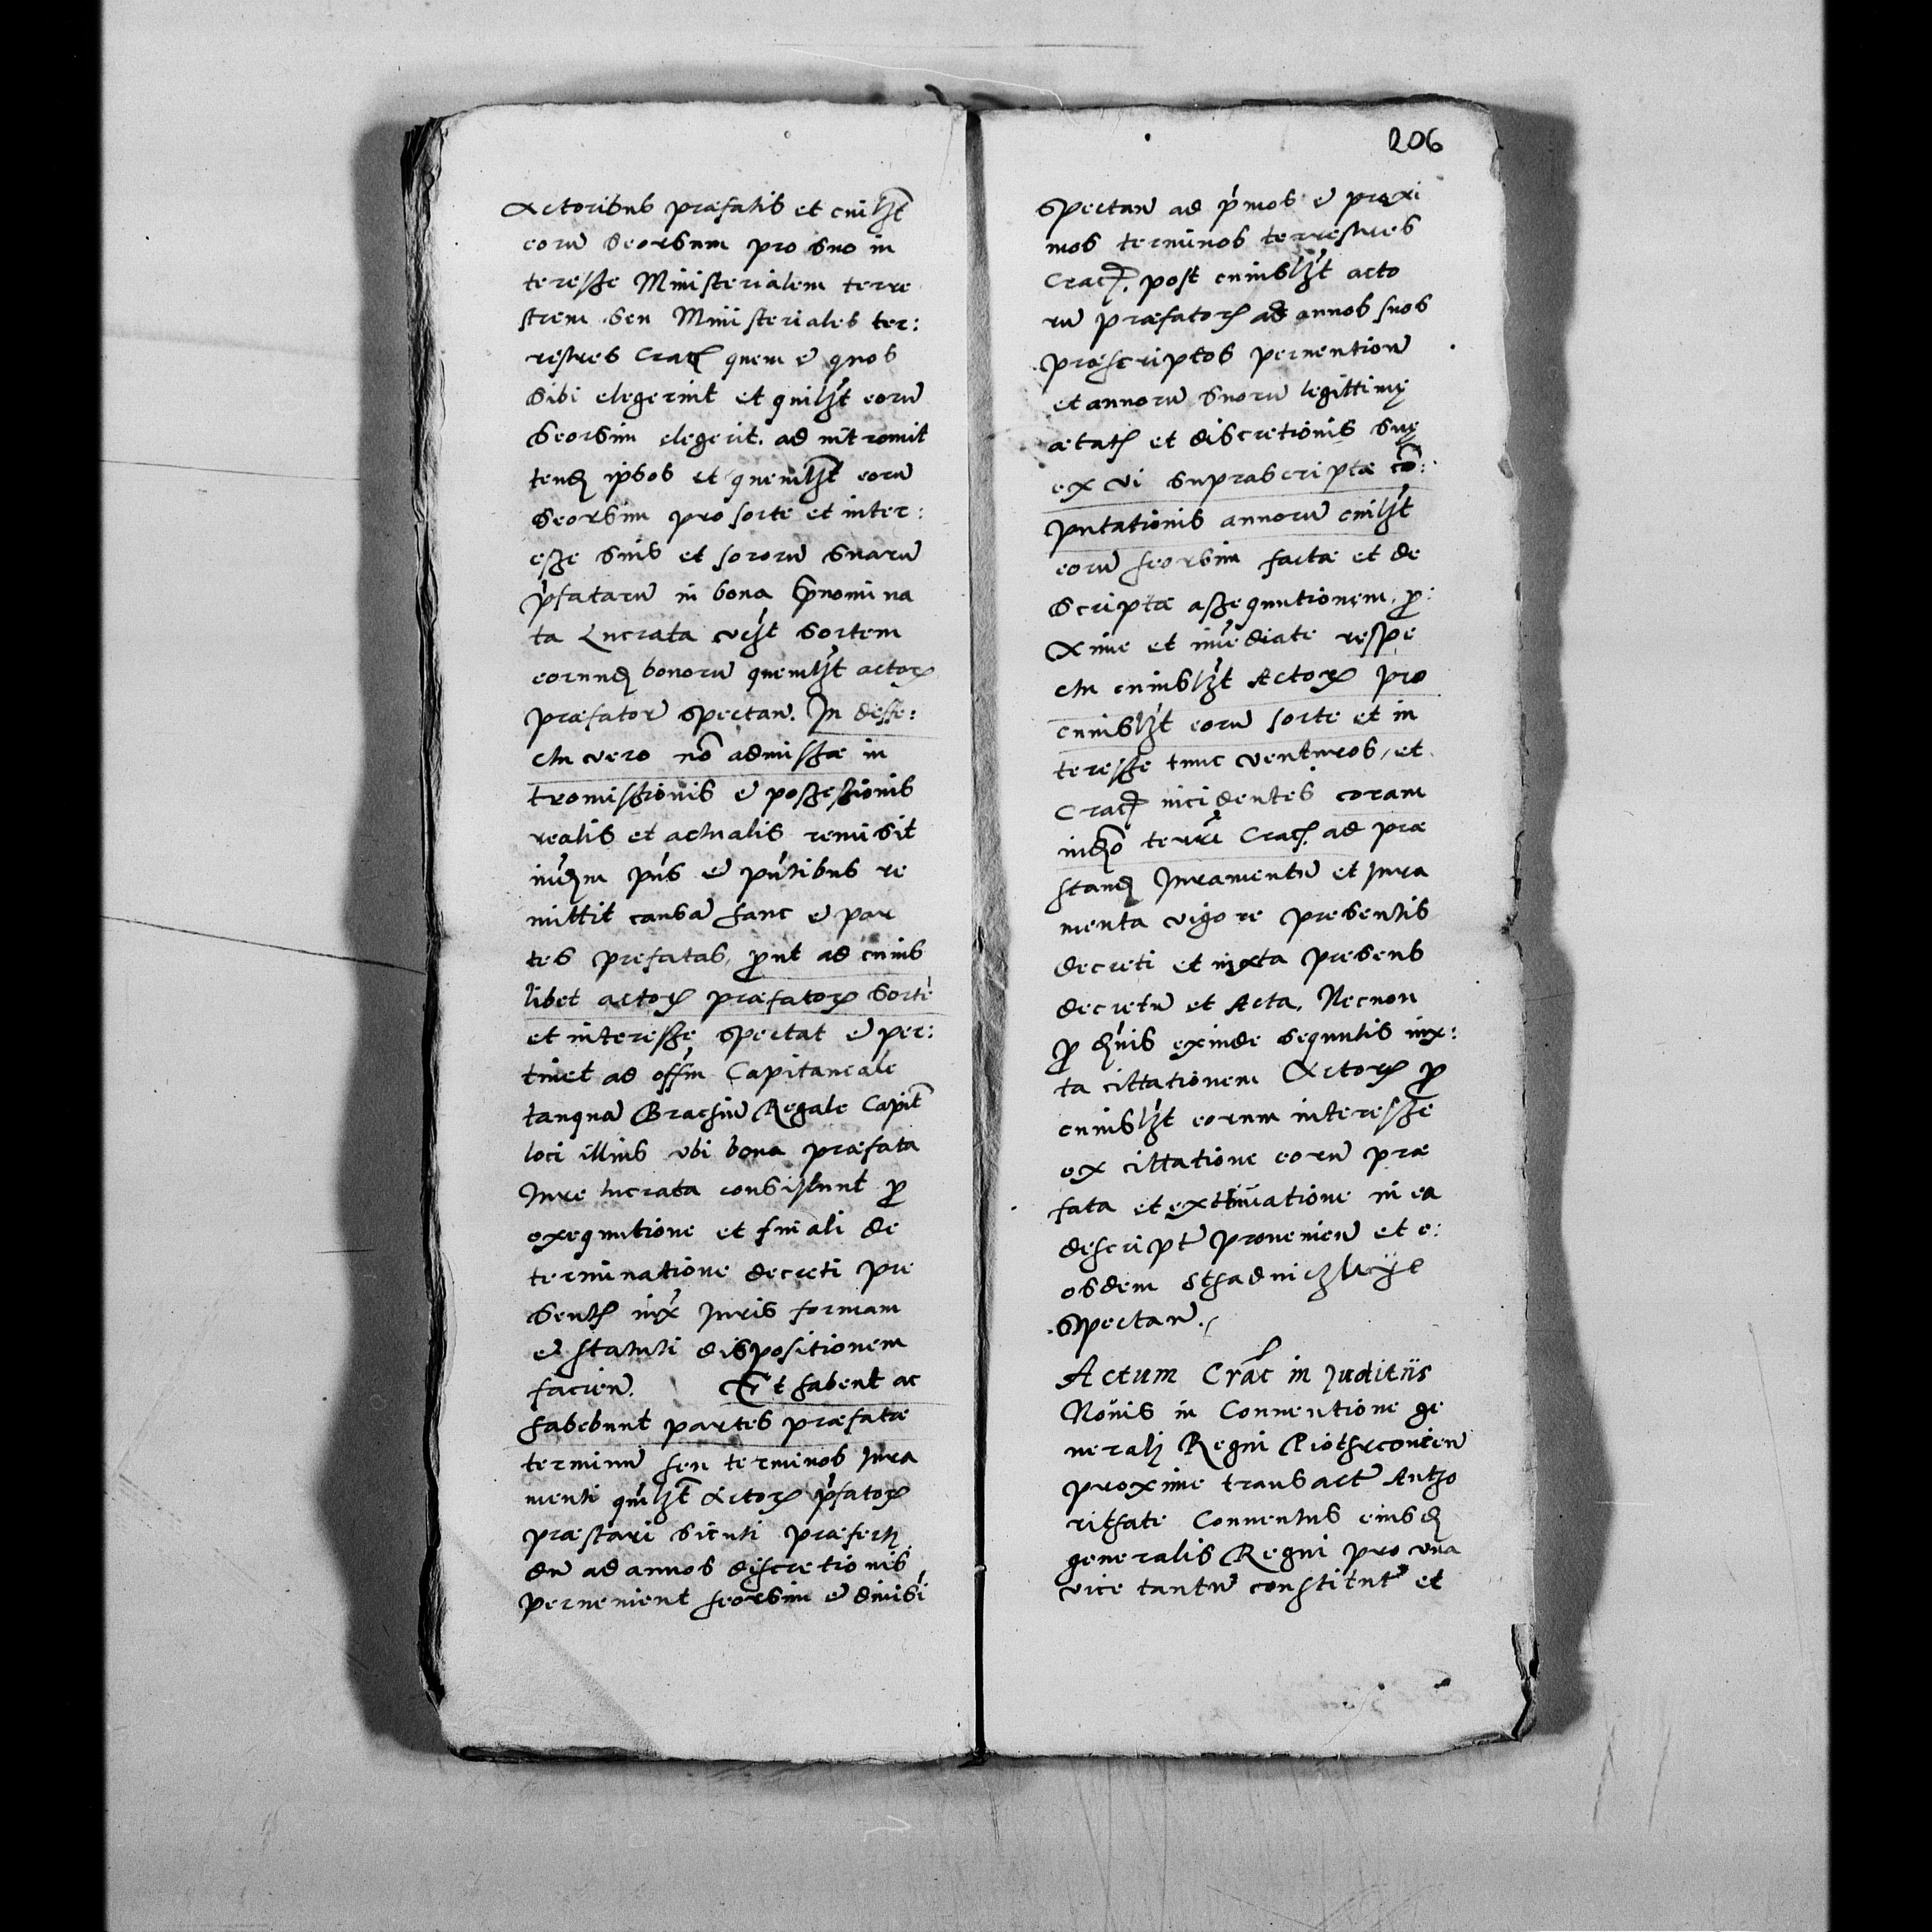 Actoribus præfatis et cuilzt
eorū seorsum pro suo in
teresse Ministerialem terre
strem seu Ministeriales ter:
restres Crac̃ quem et quos
sibi elegerint et quilzt eorū
seorsim elegerit. ad intromit
tend ipsos et quemlzt eorū
seorsim pro sorte et inter:
esse suis et sororū suarū
pfatarū in bona pnomina
ta Lucrata vest sortem
eorund bonorū quemlzt actor
præfator spectan. In deffe:
ctu vero nō admissæ in
tromissionis et possessionis
realis et actualis remisit
iudm pns et pntibus re
mittit causā hanc et par
tes prefatas, put ad cuius
libet actor præfator sorte
et interesse spectat et per:
tinet ad offm Capitaneale
tanquā Brachiū Regale Capit
loci illius vbi bona præfata
Jure lucrata consistunt p
exequutione et finali de
terminatione decreti pre
sent iux Juris formam
et statuti dispositionem
facien. Et habent ac
habebunt partes præfatæ
terminū seu terminos Jura
menti quilzt Actor pfator
præstari sicuti præfert
dū ad annos discretionis
peruenient seorsim et diuisi
206
spectan ad pmos et proxi
mos terminos terrestres
Crac. post cuiuslzt acto
rū præfator ad annos suos
præscriptos peruention
et annorū suorū legittimę
ætat et discretionis suę
ex vi suprascriptæ cō:
putationis annorū cuilzt
eorū seorsim factæ et de
scriptæ assequutionem, p:
xime et imediate respe
ctu cuiuslzt Actor pro
cuiuslzt eorū sorte et in
teresse tunc venturos, et
Crac incidentes coram
iudō terri Crac. ad præ
stand Juramentū et Jura
menta vigore presentis
decreti et iuxta presens
decretū et Acta. Necnon
p dnis exinde sequutis iux:
ta cittationem Actor p
cuiuslzt eorum interesse
ex cittatione eorū præ
fata et extimatione in ea
descript prouenien et e:
osdem Sthadniczkiye
spectan.
Actum Crac in Juditiis
Nouis in Conuentione ge
nerali Regni Piothrconien
proxime transact Autho
rithate Conuentus eiusd
generalis Regni pro vna
vice tantū constitut et